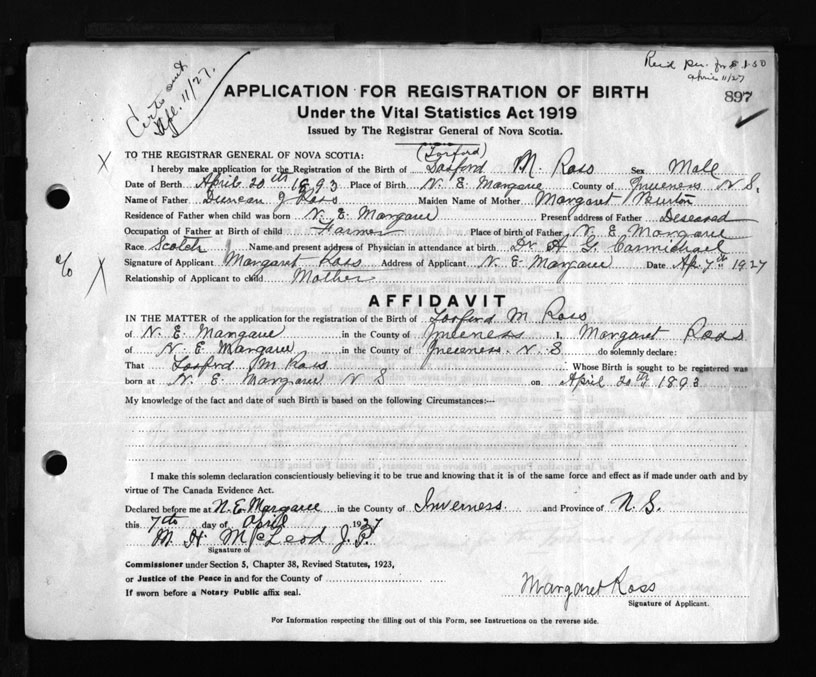 Certs sent
Apl. 11/27.
Recd per. for $1.50
April 11/27
APPLICATION FOR REGISTRATION OF BIRTH
897
Under the Vital Statistics Act 1919
Issued by The Registrar General of Nova Scotia.
TO THE REGISTRAR GENERAL OF NOVA SCOTIA: (Torford)
I hereby make application for the Registration of the Birth of M. Ross Sex Male
Date of Birth April 20th 1893 Place of Birth N. E. Margaree County of Inverness N S.
Name of Father Duncan J Ross Maiden Name of Mother Margaret Burton
Residence of Father when child was born N. E. Margaree Present address of Father Deseased
Occupation of Father at Birth of child Farmer Place of birth of Father N. E. Margaree
Race Scotch Name and present address of Physician in attendance at birth Dr. H G. Carmichael
% Signature of Applicant Margaret Ross Address of Applicant N. E Margaree Date Ap. 7th 1927
Relationship of Applicant to child Mother
AFFIDAVIT
IN THE MATTER of the application for the registration of the Birth of M Ross
of N. E. Margaree in the County of Inverness I, Margaret Ross
of N. E Margaree in the County of Inverness. N. S do solemnly declare:
That M Ross Whose Birth is sought to be registered was
born at N. E. Margaree N S on April 20th 1893
My knowledge of the fact and date of such Birth is based on the following Circumstances:—
I make this solemn declaration conscientiously believing it to be true and knowing that it is of the same force and effect as if made under oath and by
virtue of The Canada Evidence Act.
Declared before me at N. E. Margaree in the County of Inverness. and Province of N. S.
this 7th day of April 1927
M. H. McLeod J. P.
Signature of
Commissioner under Section 5, Chapter 38, Revised Statutes, 1923,
or Justice of the Peace in and for the County of
If sworn before a Notary Public affix seal.
Margaret Ross
Signature of Applicant.
For Information respecting the filling out of this Form, see Instructions on the reverse side.